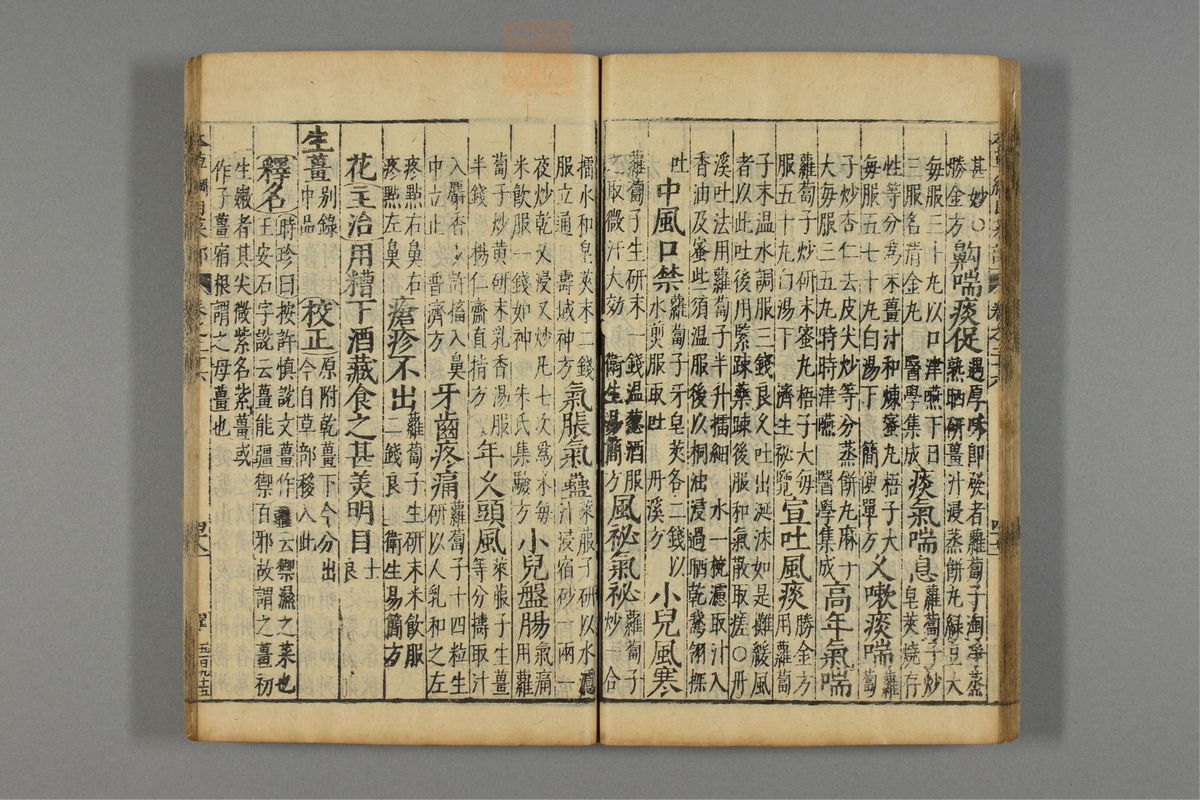 甚妙○
勝金方
齁喘痰促
遇厚味即發者蘿蔔子淘淨蒸
熟晒研薑汁浸蒸餅丸綠豆大
每服三十丸以口津嚥下日
三服名清金丸 醫學集成
痰氣喘息
蘿蔔子炒
皂莢燒存
性等分爲末薑汁和煉蜜丸梧子大
每服五七十丸白湯下 簡便單方
久嗽痰喘
蘿
蔔
子炒杏仁去皮尖炒等分蒸餅丸麻子
大每服三五丸時時津嚥 醫學集成
高年氣喘
蘿蔔子炒研末蜜丸梧子大每
服五十丸白湯下 濟生秘覽
宣吐風痰
勝金方
用蘿蔔
子末温水調服三錢良久吐出涎沫如是攤緩風
者以此吐後用緊疎藥疎後服和氣散取瘥○丹
溪吐法用蘿蔔子半升擂細 水一椀濾取汁入
香油及蜜些須温服後以桐油浸過晒乾鵝翎探
吐
中風口禁
蘿蔔子牙皂莢各二錢以
水煎服取吐 丹溪方
小兒風寒
蘿蔔子生研末一錢温葱酒服
之取微汗大効 衛生易簡方
風祕氣祕
蘿蔔子
炒一合
擂水和皂莢末二錢
服立通 壽域神方
氣脹氣蠱
萊服子研以水濾
汁浸宿砂一兩一
夜炒乾又浸又炒凡七次爲末每
米飲服一錢如神 朱氏集驗方
小兒盤腸
氣痛
用蘿
蔔子炒黄研末乳香湯服
半錢 楊仁齋直指方
年久頭風
萊服子生薑
等分擣取汁
入麝香少許搐入鼻
中立止 普濟方
牙齒疼痛
蘿蔔子十四粒生
研以人乳和之左
疼點右鼻右
疼點左鼻
瘡疹不出
蘿蔔子生研末米飲服
二錢良 衛生易簡方
花主治用糟下酒藏食之甚美明目
士
良
生薑
别錄
中品
校正
原附乾薑下今分出
今自草部移入此
釋名
時珍曰按許慎說文薑作云禦濕之菜也
王安石字說云薑能疆禦百邪故謂之薑初
生嫩者其尖微紫名紫薑或
作子薑宿根謂之母薑也